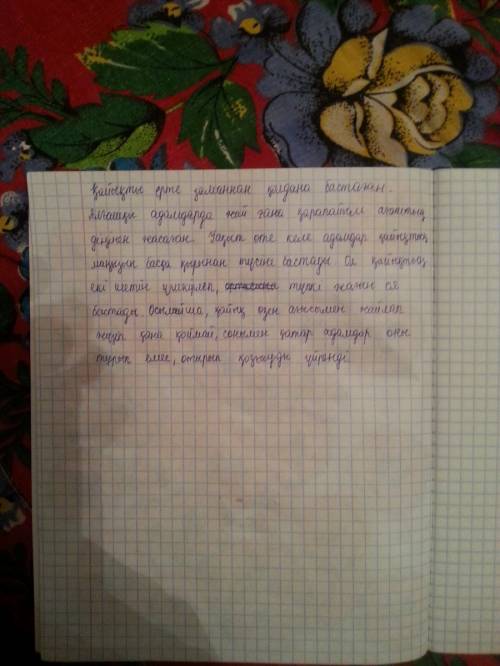 Қайықты ерте заманнан қолдана бастаған.
Алғашқы адамдарда жай ғана қарапайым ағаштың
діңінен жасаған. Уақыт өте келе адамдар қайықтың
маңызын басқа қырынан түсіне бастады. Ол қайықтың
екі шетін үшкірлеп, түпкі жағын оя
бастады. Осылайша, қайық өзен ағысымен жайлап
жүзіп қана қоймай, сонымен қатар адамдар оны
тұрып емес, отырып қозғауды үйренді.